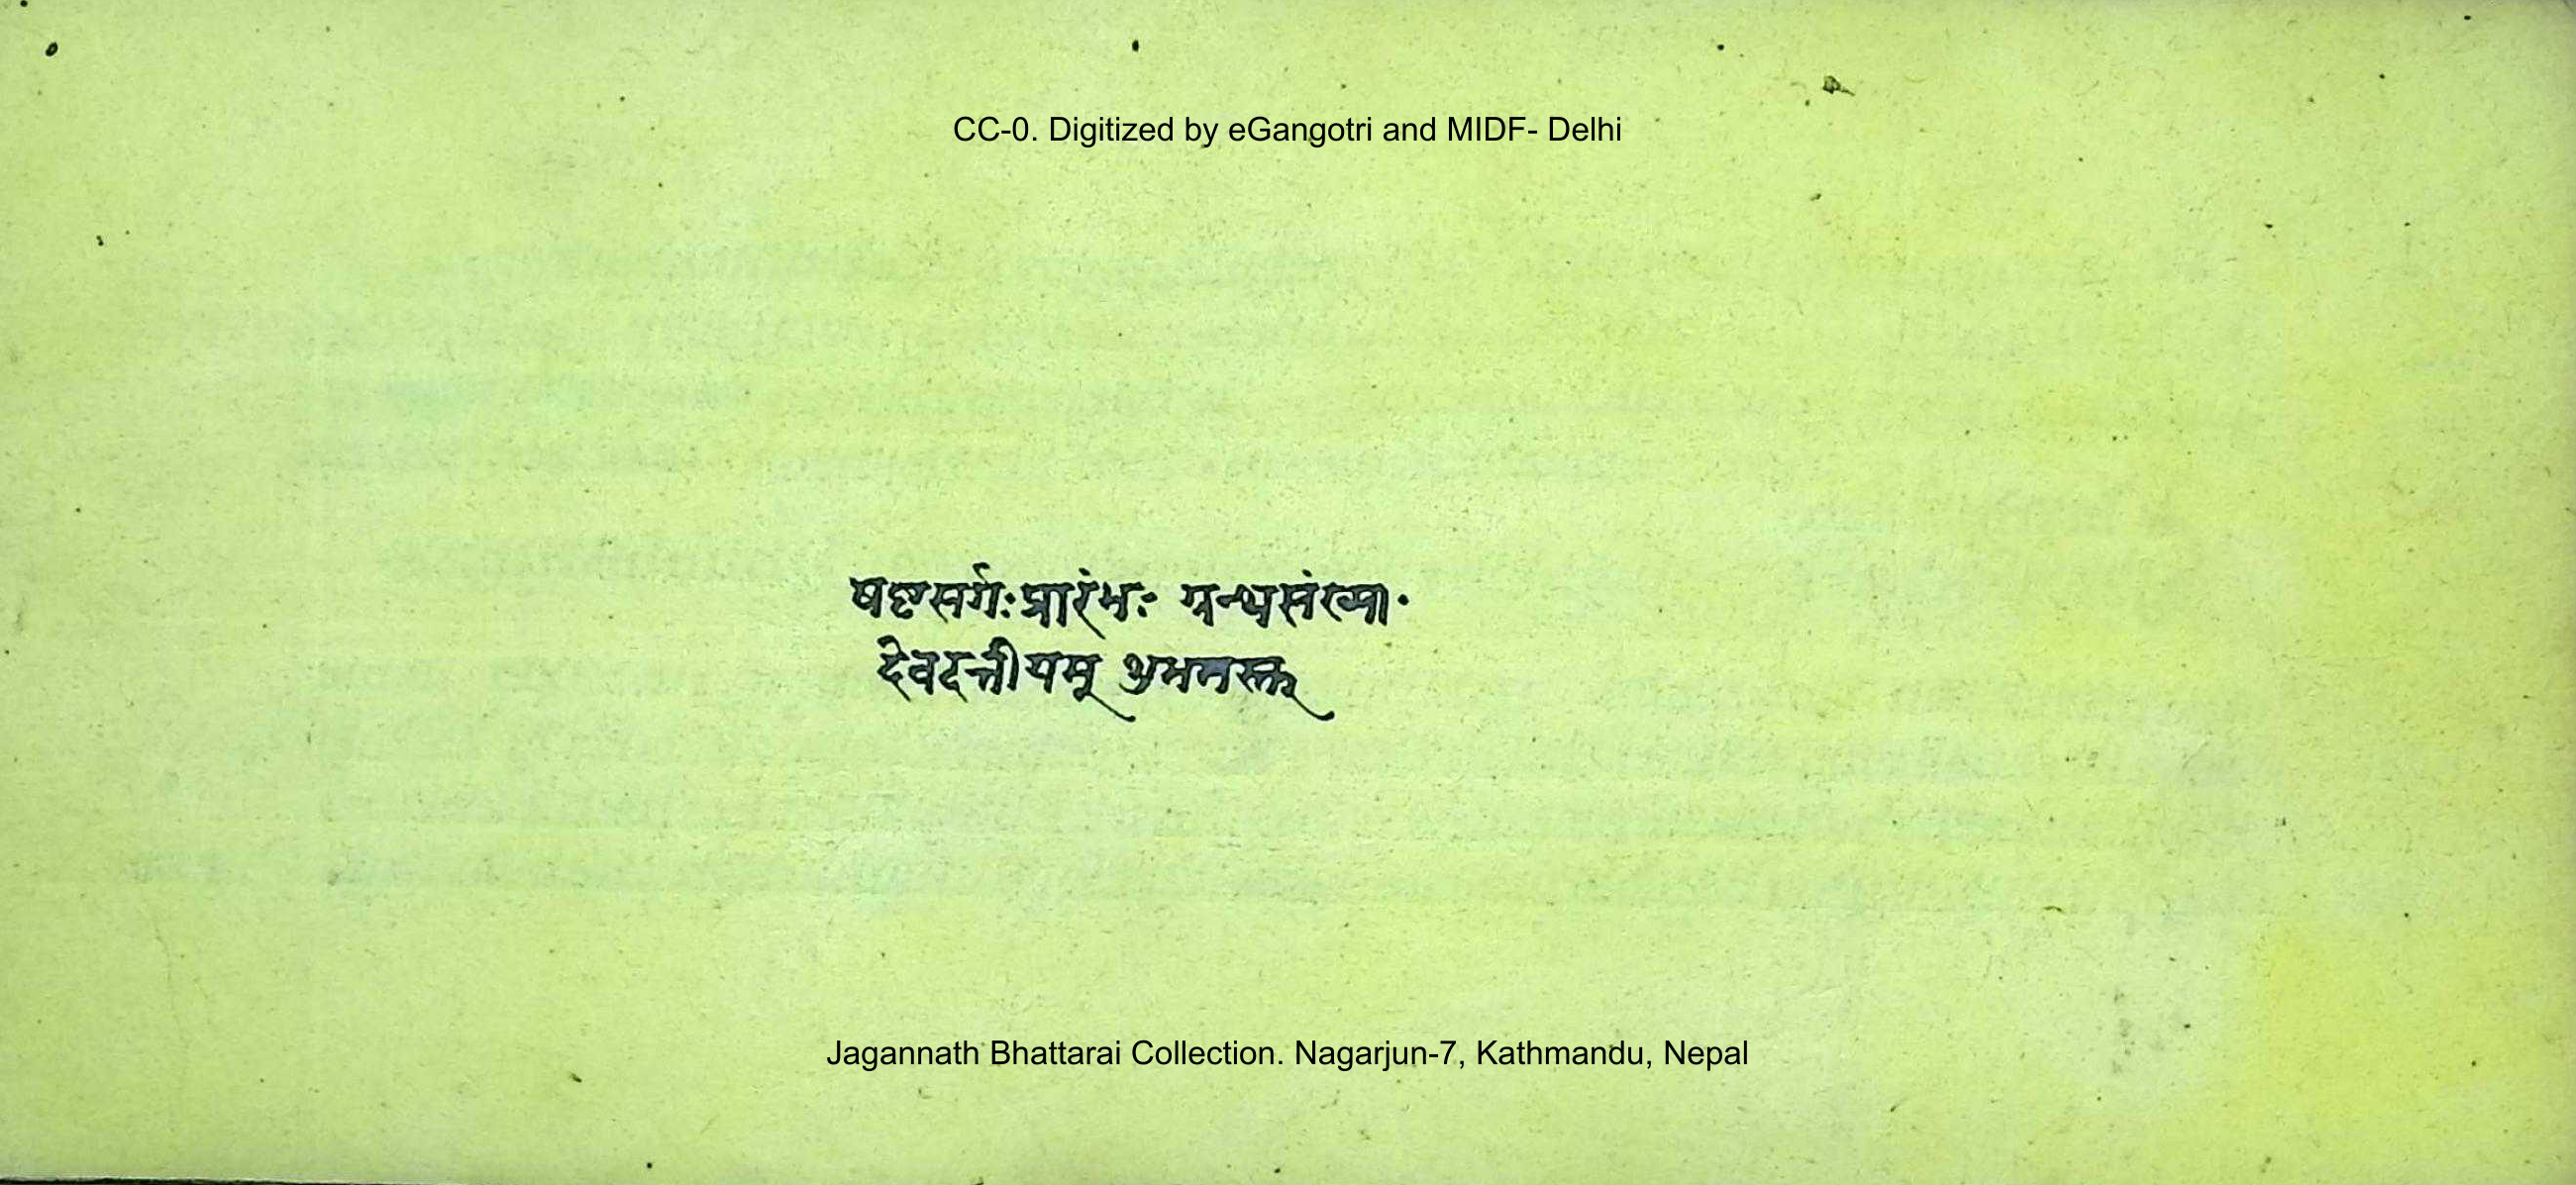 CC-0. Digitized by eGangotri and MIDF- Delhi
षष्ठसर्गः प्रारंभः ग्रन्थसंख्या
देवदत्तीयम् शुभमस्तु
Jagannath Bhattarai Collection. Nagarjun-7, Kathmandu, Nepal